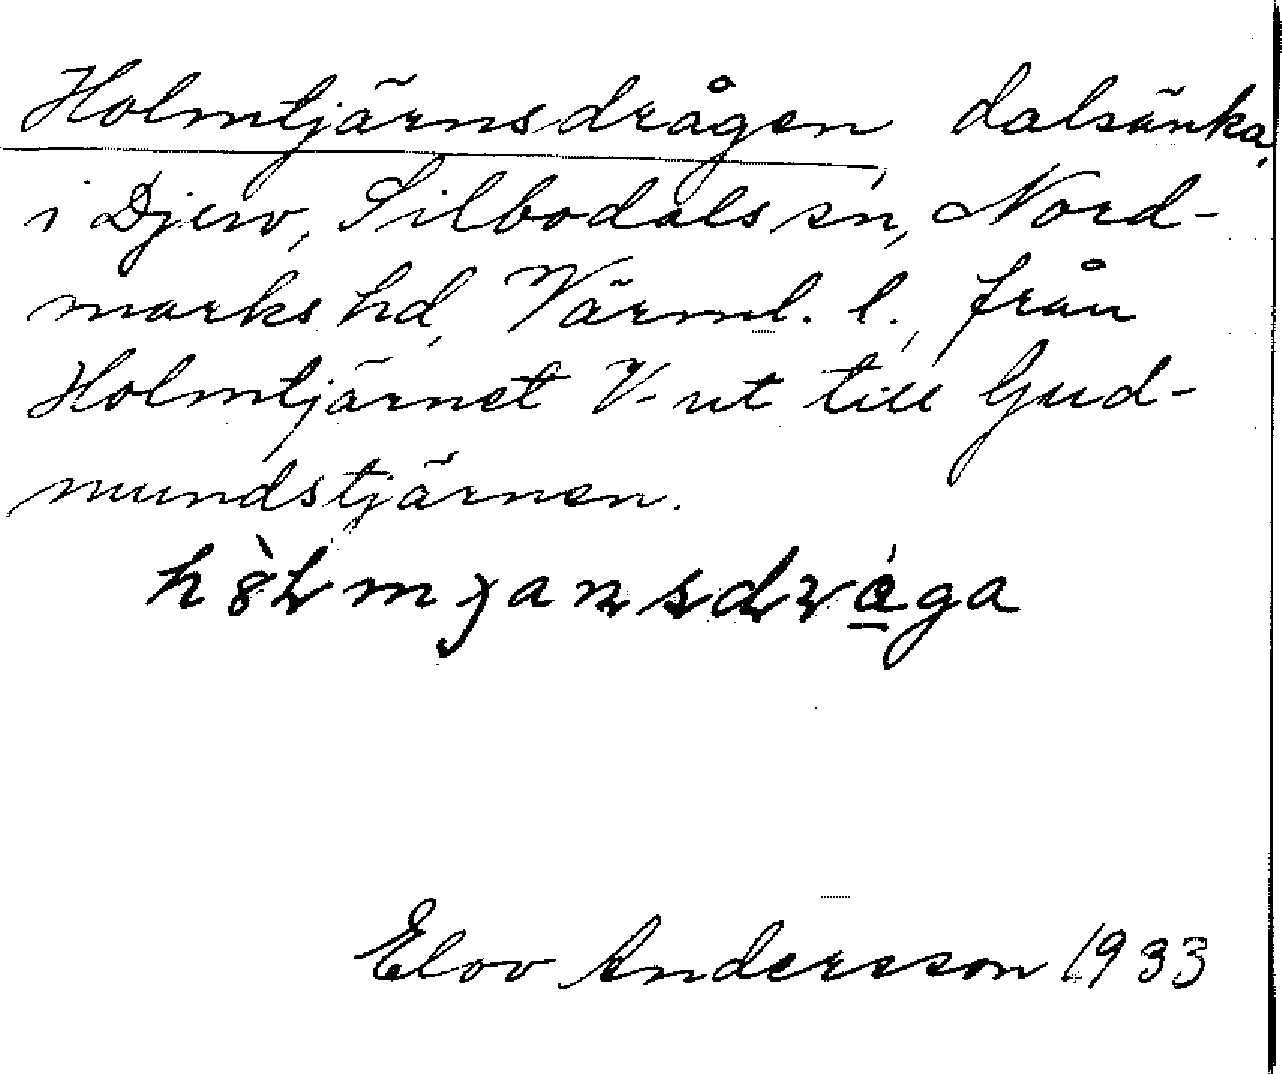 Holmtjärnsdrågen, dalsänka,
i Djerv, Silbodals sn, Nord-
marks hd, Värml. l., från
Holmtjärnet V-ut till Gud-
mundstjärnen.
Elov Andersson 1933